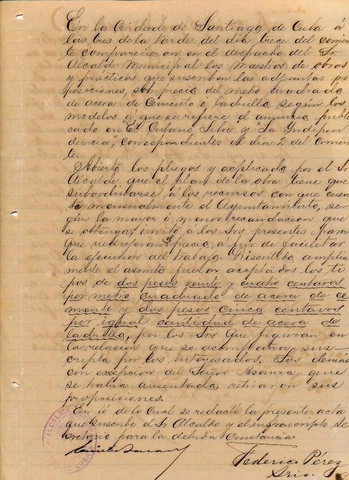 En la Ciudad de Santiago de Cuba á
las tres de la tarde del dia trece del corrien
te comparecieron en el despacho del Sr.
Alcalde Municipal los Maestros de obras
y prácticos que suscriben las adjuntas pro
posiciones, sobre precio del metro cuadrado
de acera de Cemento ó ladrillo, segun los
modelos á que se refiere el anuncio publi
cado en "El Cubano Libre y La Indepen
dencia", correspondientes al dia 2 del Corrien
te.
Abiertos los pliegos y esplicado por el Sr
Alcalde que el plan de la obra tiene que
subordinarse á los recursos con que
mensualmente el Ayuntamiento, se
gún la mayor ó menor recaudacion que
se obtenga, invitó á los Sres presentes para
que redujeran el precio, á fin de facilitar
la ejecucion del trabajo. Discutido amplia
mente el asunto fueron aceptados los ti
pos de dos pesos veinte y cuatro centavos
por metro cuadrado de acera de ce
mento y dos pesos cinco centavos
por igual cantidad de acera de
ladrillo, por los Sres que figuran en
la relacion que se acompaña, sus
cripta por los interesados. Los demas
con excepcion del Señor que
se habia ausentado, retiraron sus
proposiciones.
En fé de lo cual se redacta la presente acta
que suscribe el Sr Alcalde y el infrascripto Se
cretario para la debida Constancia.
Federico Pérez
Srio.